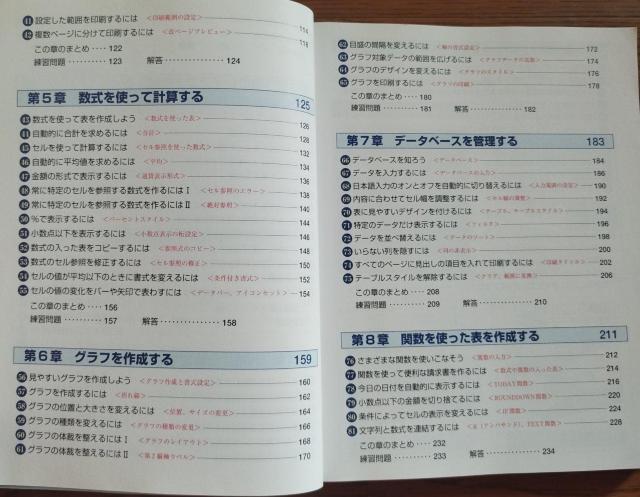 41 設定した範囲を印刷するには <印刷範囲の設定> 114
42 複数ページに分けて印刷するには <改ページプレビュー> 118
この章のまとめ…… 122
練習問題………… 123 解答………… 124
第5章 数式を使って計算する 125
43 数式を使って表を作成しよう <数式を使った表> 126
44 自動的に合計を求めるには <合計> 128
45 セルを使って計算するには <セル参照を使った数式> 132
46 自動的に平均値を求めるには <平均> 134
47 金額の形式で表示するには <通貨表示形式> 136
48 常に特定のセルを参照する数式を作るにはⅠ <セル参照のエラー> 138
49 常に特定のセルを参照する数式を作るにはⅡ <絶対参照> 140
50 %で表示するには <パーセントスタイル> 144
51 小数点以下を表示するには <小数点表示の桁設定> 146
52 数式の入った表をコピーするには <参照式のコピー> 148
53 数式のセル参照を修正するには <セル参照の修正> 150
54 セルの値が平均以下のときに書式を変えるには <条件付き書式> 152
55 セルの値の変化をバーや矢印で表わすには <データバー、アイコンセット> 154
この章のまとめ…… 156
練習問題………… 157 解答………… 158
第6章 グラフを作成する 159
56 見やすいグラフを作成しよう <グラフ作成と書式設定> 160
57 グラフを作成するには <折れ線> 162
58 グラフの位置と大きさを変えるには <位置、サイズの変更> 164
59 グラフの種類を変えるには <グラフの種類の変更> 166
60 グラフの体裁を整えるにはⅠ <グラフのレイアウト> 168
61 グラフの体裁を整えるにはⅡ <第2縦軸ラベル> 170
62 目盛の間隔を変えるには <軸の書式設定> 172
63 グラフ対象データの範囲を広げるには <グラフデータの追加> 174
64 グラフのデザインを変えるには <グラフのスタイル> 176
65 グラフを印刷するには <グラフの印刷> 178
この章のまとめ…… 180
練習問題………… 181 解答………… 182
第7章 データベースを管理する 183
66 データベースを知ろう <データベース> 184
67 データを入力するには <データベースの入力> 186
68 日本語入力のオンとオフを自動的に切り替えるには <入力規則の設定> 190
69 内容に合わせてセル幅を調整するには <セル幅の調整> 192
70 表に見やすいデザインを付けるには <テーブル、テーブルスタイル> 194
71 特定のデータだけ表示するには <フィルタ> 196
72 データを並べ替えるには <データのソート> 198
73 いらない列を隠すには <列の非表示> 200
74 すべてのページに見出しの項目を入れて印刷するには <印刷タイトル> 202
75 テーブルスタイルを解除するには <クリア、範囲に変換> 206
この章のまとめ…… 208
練習問題………… 209 解答………… 210
第8章 関数を使った表を作成する 211
76 さまざまな関数を使いこなそう <関数の入力> 212
77 関数を使って便利な請求書を作るには <数式や関数の入った表> 214
78 今日の日付を自動的に表示するには <TODAY関数> 216
79 小数点以下の金額を切り捨てるには <ROUNDDOWN関数> 220
80 条件によってセルの表示を変えるには <IF関数> 224
81 文字列と数式を連結するには <&(アンパサンド)、TEXT関数> 228
この章のまとめ…… 232
練習問題………… 233 解答………… 234